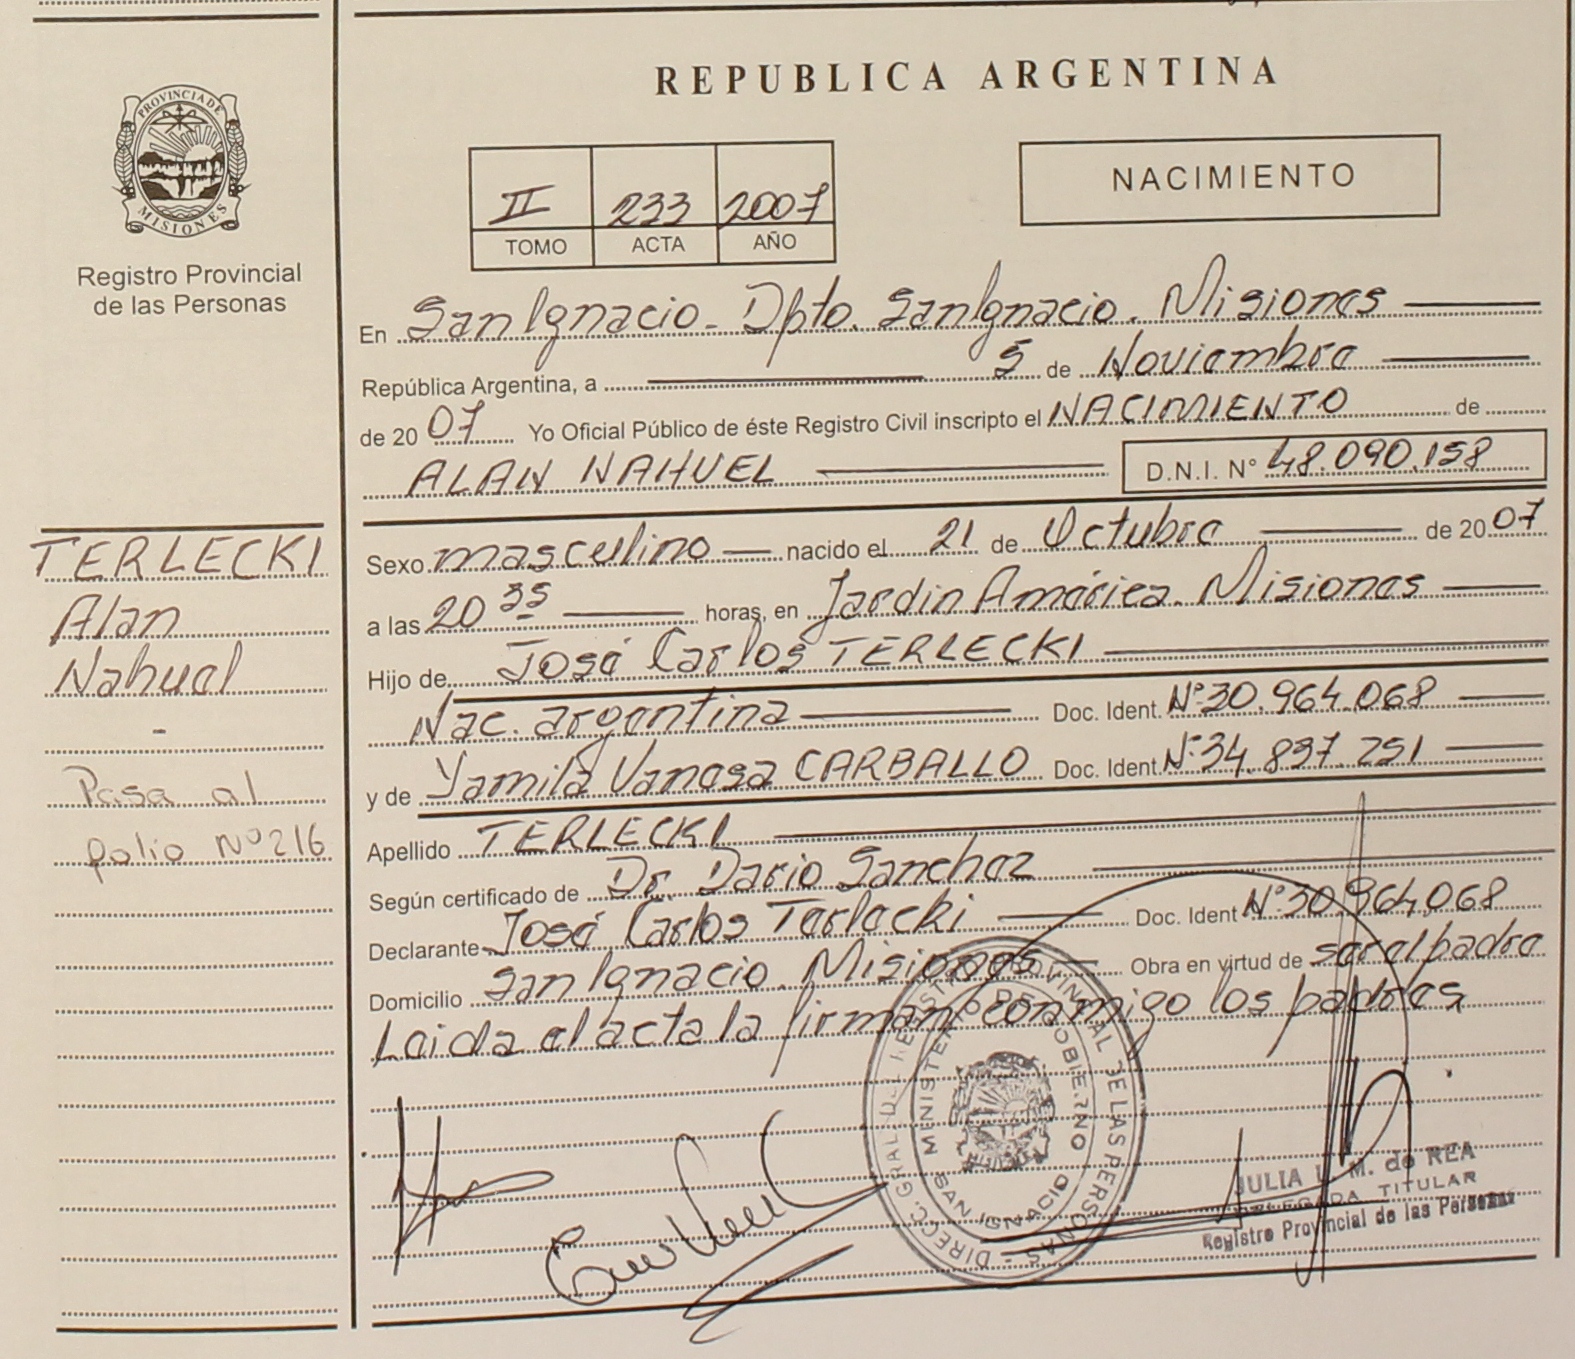 REPUBLICA ARGENTINA
PROVINCIA DE
MISIONES
Registro Provincial
de las Personas
II 233 2007
TOMO ACTA AÑO
NACIMIENTO
En San Ignacio - Dpto. San Ignacio. Misiones
República Argentina, a 5 de Noviembre
de 2007 Yo Oficial Público de éste Registro Civil inscripto el NACIMIENTO de
ALAN NAHUEL D.N.I. N° 48.090.158
TERLECKI
Alan
Nahuel
-
Pasa al
folio Nº 216
Sexo masculino nacido el 21 de Octubre de 2007
a las 20 35 horas, en Jardin América. Misiones
Hijo de José Carlos TERLECKI
Nac. argentina Doc. Ident. Nº 30.964.068
y de Yamila Vanesa CARBALLO Doc. Ident. Nº 34.897.251
Apellido TERLECKI
Según certificado de Dr. Dario Sanchez
Declarante José Carlos Terlecki Doc. Ident Nº 30.964.068
Domicilio San Ignacio. Misiones Obra en virtud de ser el padre
Leida el acta la firman conmigo los padres
DIRECC. GRAL. DEL REGISTRO PROVINCIAL DE LAS PERSONAS -
MINISTERIO DE GOBIERNO
SAN IGNACIO
JULIA L. M. de REA
DELEGADA TITULAR
Registro Provincial de las Personas